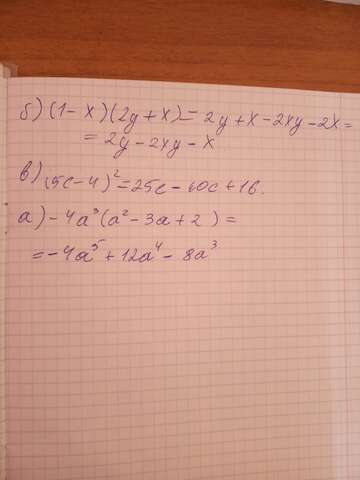 б) (1-x)(2y+x)=2y+x-2xy-2x=
=2y-2xy-x
в) (5c-4)²=25c-40c+16.
а) -4a³(a²-3a+2)=
=-4a⁵+12a⁴-8a³